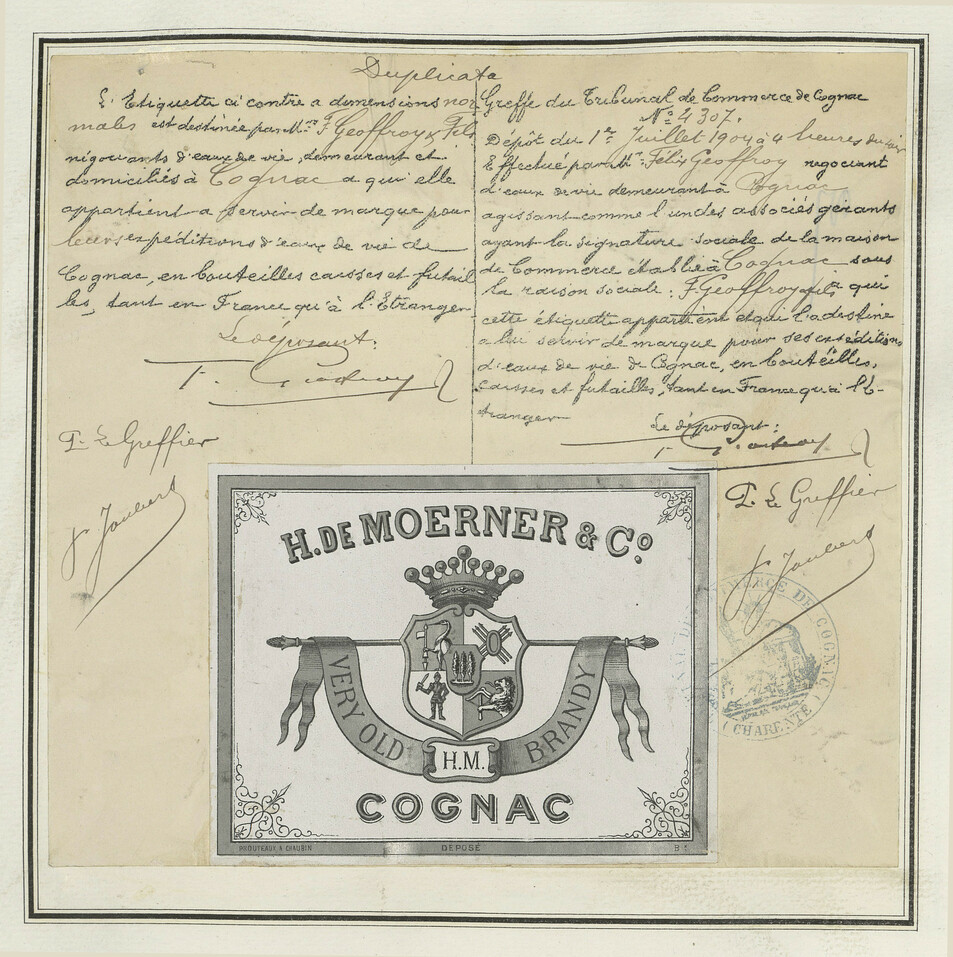 Duplicata
L'Etiquette ci contre a dimensions nor
males est destinée par Mrs F Geoffroy & Fils
négociants d'eaux de vie, demeurant et
domiciliés à Cognac a qui elle
appartient a servir de marque pour
leurs expéditions d'eaux de vie de
Cognac, en bouteilles caisses et futail
les, tant en France qu'à l'Etranger
Le déposant:
F. Geoffroy
P. Le Greffier
Joubert
Greffe du Tribunal de Commerce de Cognac
No 4307.
Dépôt du 1er Juillet 1904 à 4 heures du soir
Effectué par Mr Félix Geoffroy négociant
d'eaux de vie demeurant à Cognac
agissant comme l'un des associés gérants
ayant la signature sociale de la maison
de Commerce établie à Cognac sous
la raison sociale: F Geoffroy & fils a qui
cette étiquette appartient et qui l'a destine
a lui servir de marque pour ses expéditions
d'eaux de vie de Cognac, en bouteilles,
caisses et futailles, tant en France qu'à l'E-
tranger
Le déposant:
F. Geoffroy
P. Le Greffier
Joubert
COMMERCE DE COGNAC
(CHARENTE)
H. DE MOERNER & Co
VERY OLD
H.M.
BRANDY
COGNAC
PROUTEAUX & CHAUBIN
DEPOSÉ